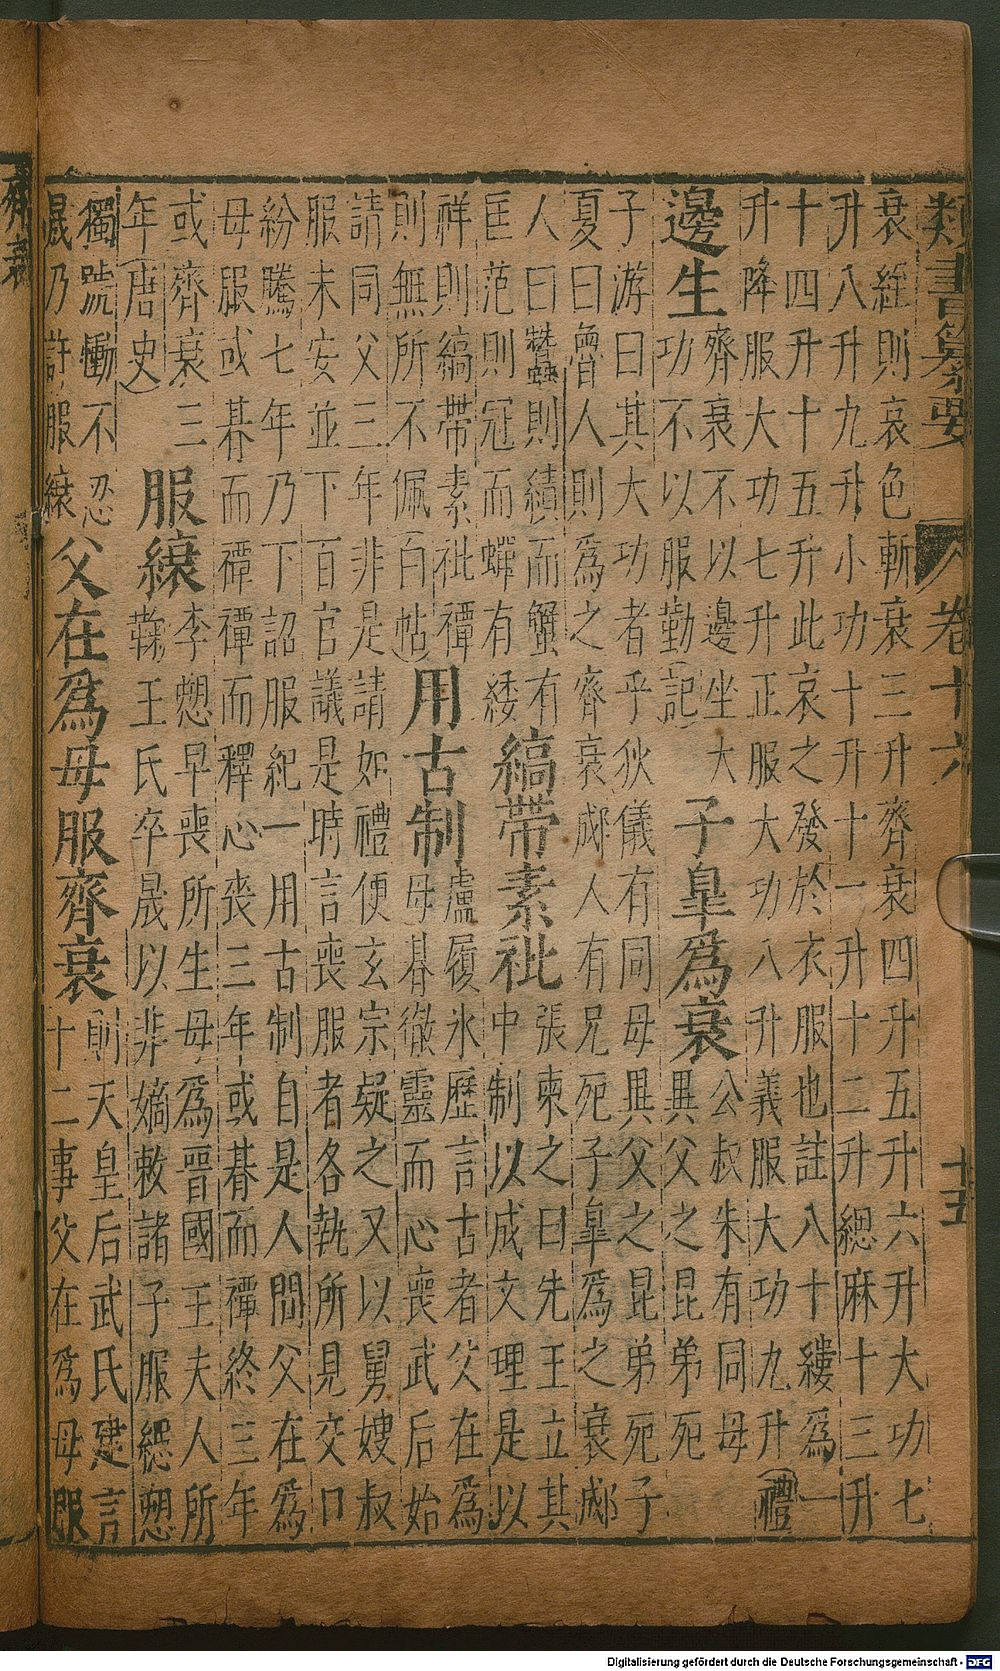 類書纂要 卷十六 十五
衰絰則哀色斬衰三升齊衰四升五升六升大功七
升八升九升小功十升十一升十二升緦麻十三升
十四升十五升此哀之發於衣服也註八十縷爲一
升降服大功七升正服大功八升義服大功九升(禮
邊生
齊衰不以邊坐大
功不以服勤(記)
子皐爲衰
公叔朱有同母
異父之昆弟死
子游曰其大功者乎狄儀有同母異父之昆弟死子
夏曰魯人則爲之齊衰郕人有兄死子皐爲之衰郕
人曰蠶則績而蟹有
匡范則冠而蟬有緌
縞帶素紕
張柬之曰先王立其
中制以成文理是以
祥則縞帶素紕禫
則無所不佩(白帖)
用古制
盧履氷歷言古者父在爲
母朞徹靈而心喪武后始
請同父三年非是請如禮便玄宗疑之又以舅嫂叔
服未安並下百官議是時言喪服者各執所見交口
紛騰七年乃下詔服紀一用古制自是人間父在爲
母服或朞而禫禫而釋心喪三年或朞而禫終三年
或齊衰三
年(唐史)
服縗
李愬早喪所生母爲晉國王夫人所
鞠王氏卒晟以非嫡敕諸子服緦愬
獨號慟不忍
晟乃許服縗
父在爲母服齊衰
則天皇后武氏建言
十二事父在爲母服
齊衰
Digitalisierung gefördert durch die Deutsche Forschungsgemeinschaft - DFG